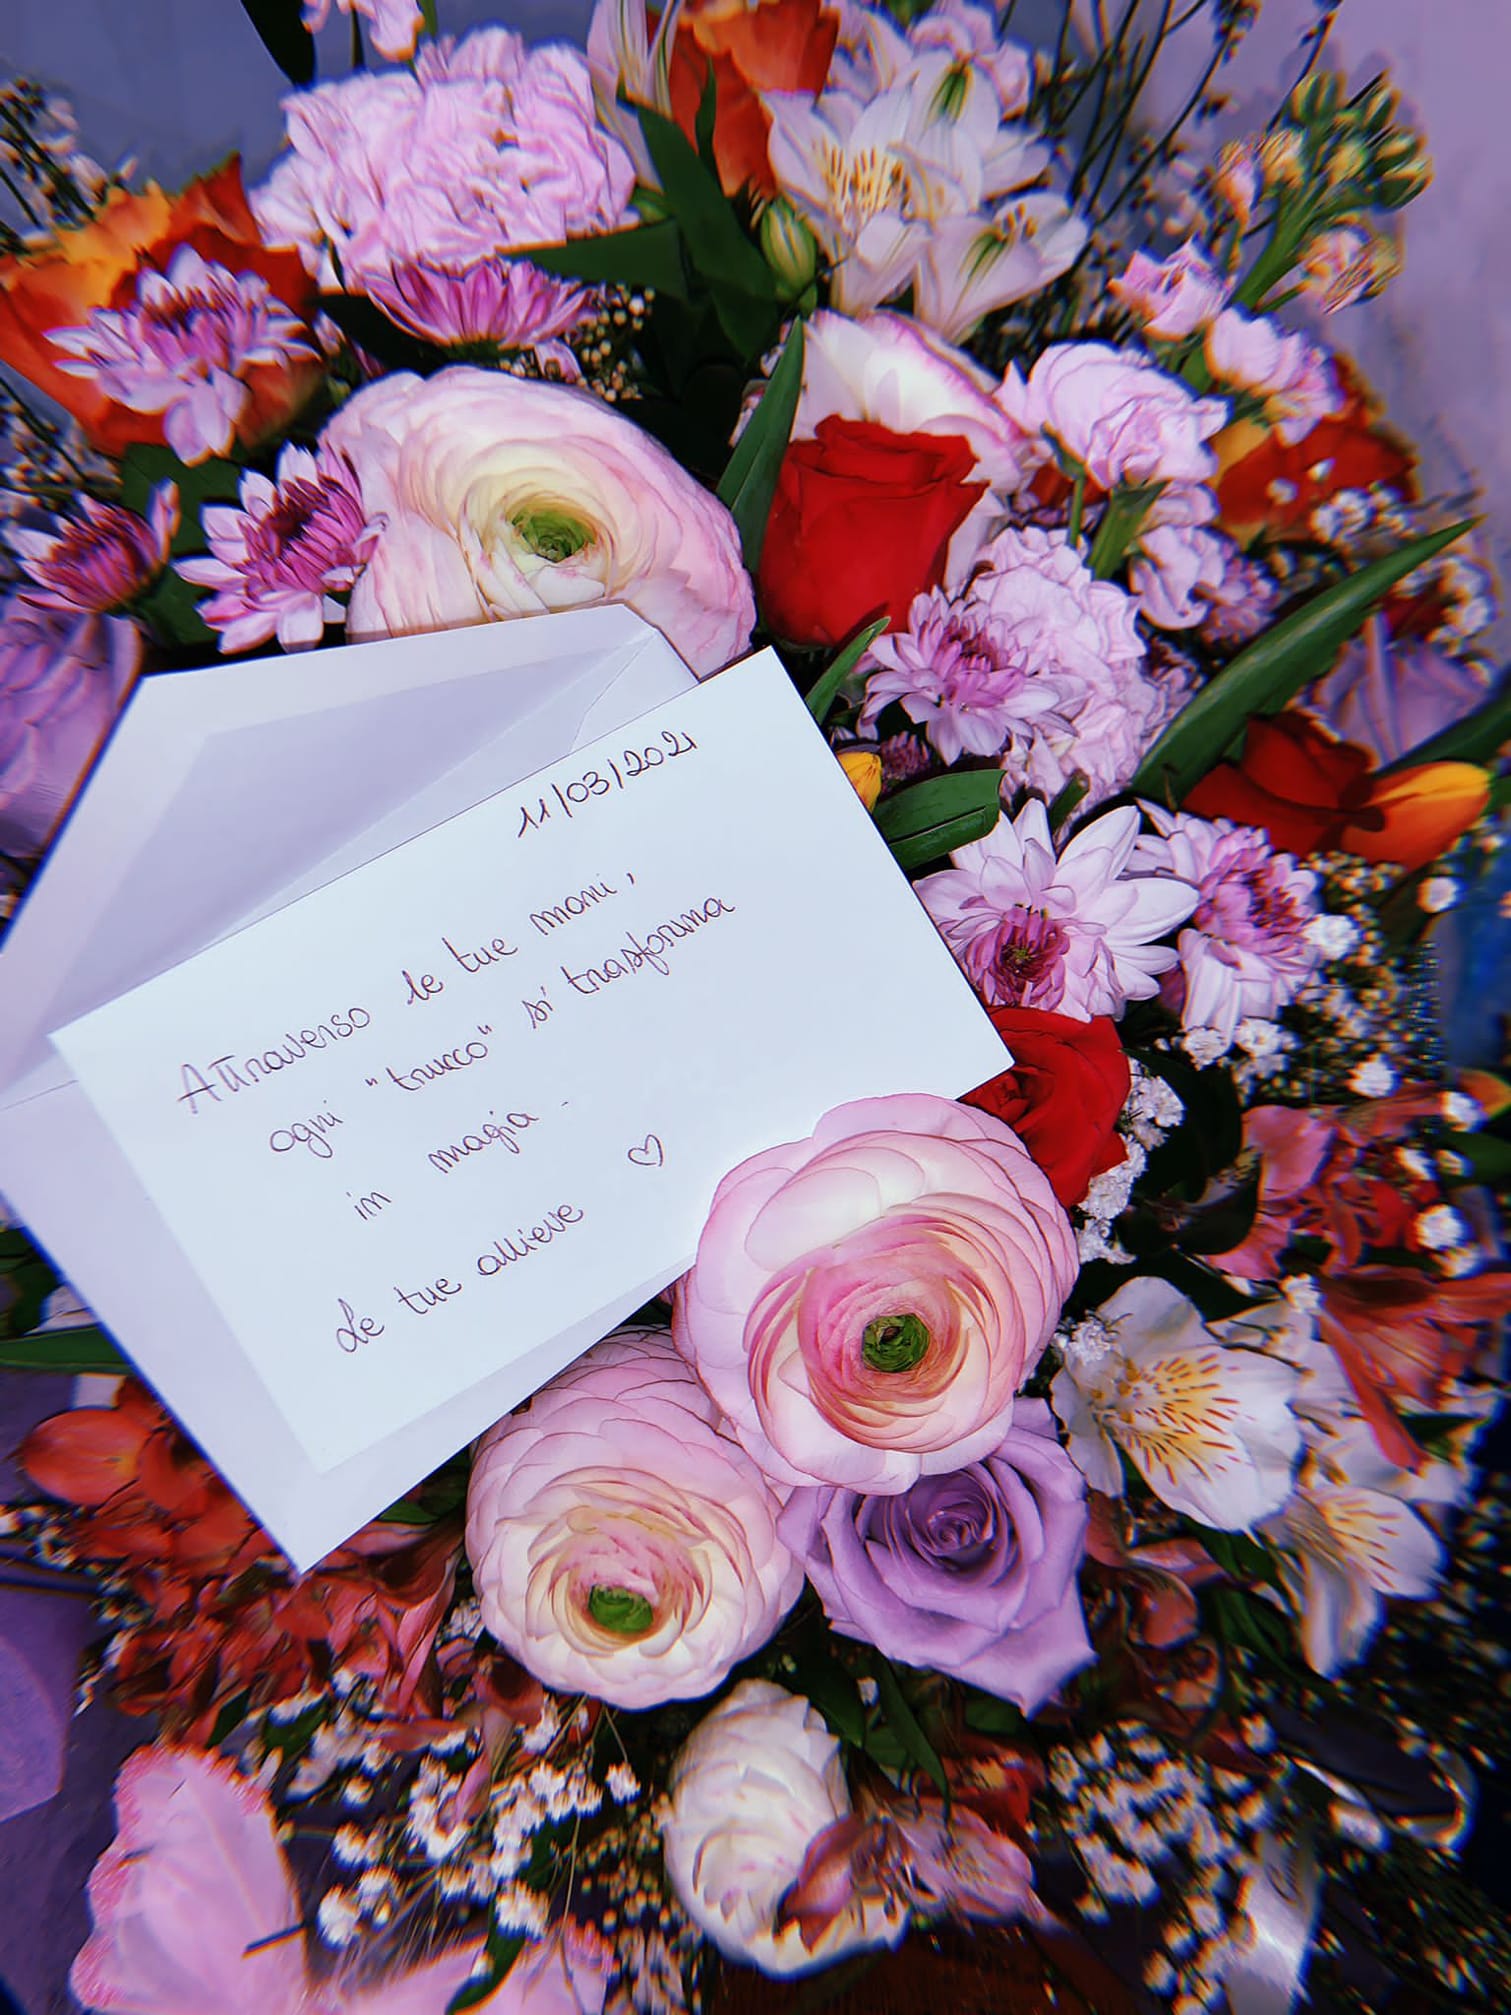 11/03/2021
Attraverso le tue mani,
ogni "trucco" si trasforma
in magia.
Le tue allieve ♡